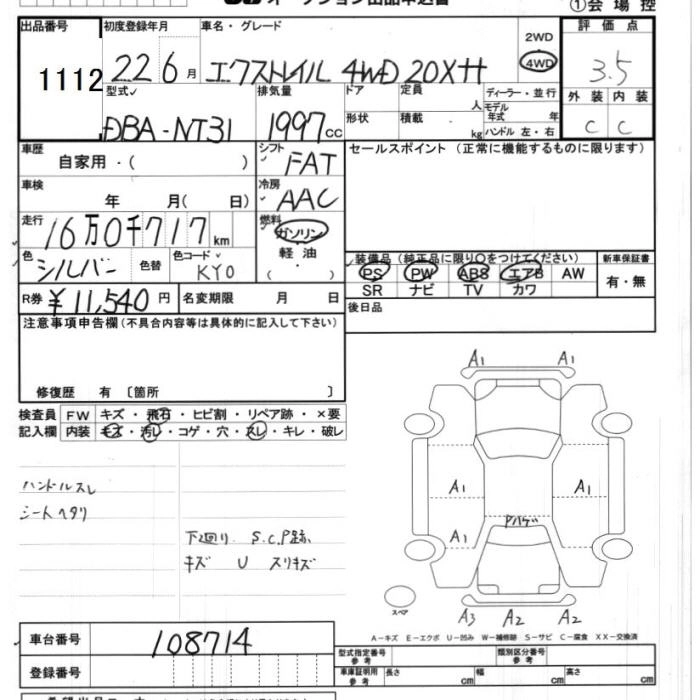 ①会場控
出品番号 初度登録年月 車名・グレード 2WD 評価点
1112 22 6月 エクストレイル 4WD 20Xtt 4WD 3.5
型式 排気量 ドア 定員 人 ディーラー・並行 外装 内装
DBA-NT31 1997cc 形状 積載 kg モデル年式 年 ハンドル 左・右 C C
車歴 シフト セールスポイント (正常に機能するものに限ります)
自家用・( ) FAT
車検 冷房
年 月( 日) AAC
走行 燃料
16万0千717km ガソリン
色 色替 色コード 軽油 装備品 (純正品に限り○をつけてください) 新車保証書
シルバー KY0 ( ) PS PW ABS エアB AW 有・無
R券 ¥11,540円 名変期限 月 日 SR ナビ TV カワ
注意事項申告欄(不具合内容等は具体的に記入して下さい) 後日品
修復歴 有 〔箇所 〕
検査員 FW キズ・飛石・ヒビ割・リペア跡・×要
記入欄 内装 キズ・汚レ・コゲ・穴・スレ・キレ・破レ
A1 A1
ハンドルスレ
シートヘタリ
A1 A1
Pハゲ
A1
下回り S.C.P跡
キズ U スリキズ
スペア
A3 A2 A2
A-キズ E-エクボ U-凹み W-補修跡 S-サビ C-腐食 XX-交換済
車台番号 108714
型式指定番号 参考 類別区分番号 参考
登録番号 車庫証明用 参考 長さ cm 幅 cm 高さ cm